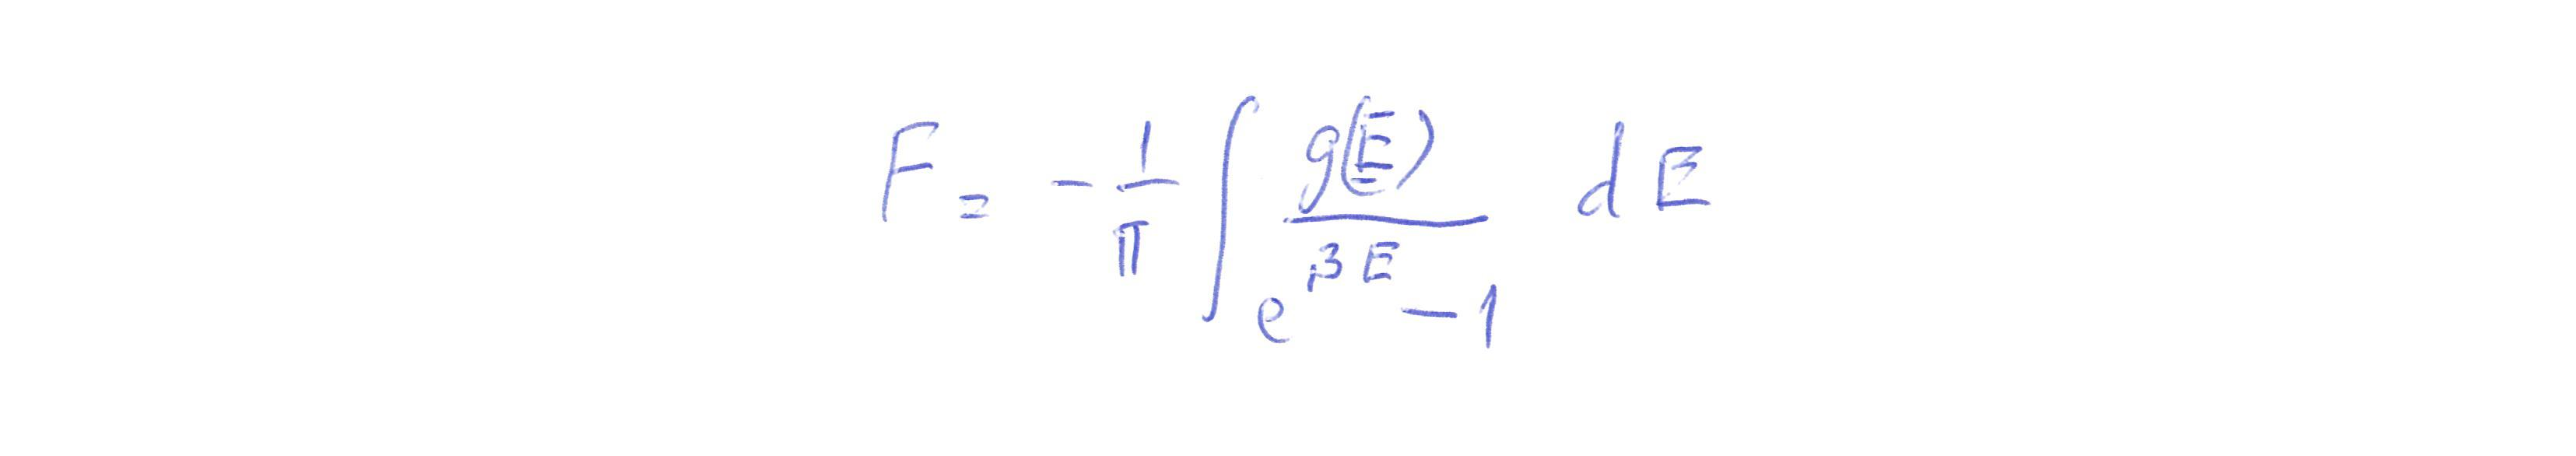 $F = -\frac{1}{\pi} \int \frac{g(E)}{e^{\beta E} - 1} dE$